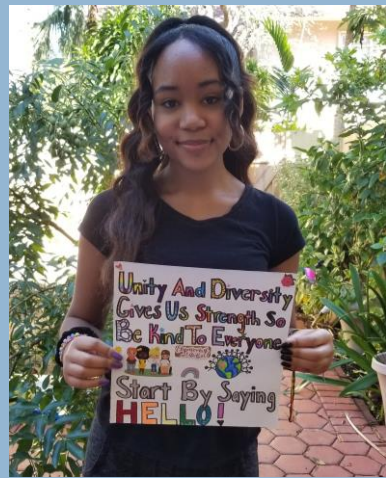 Unity And Diversity
Gives Us Strength So
Be Kind To Everyone
Start By Saying
HELLO!